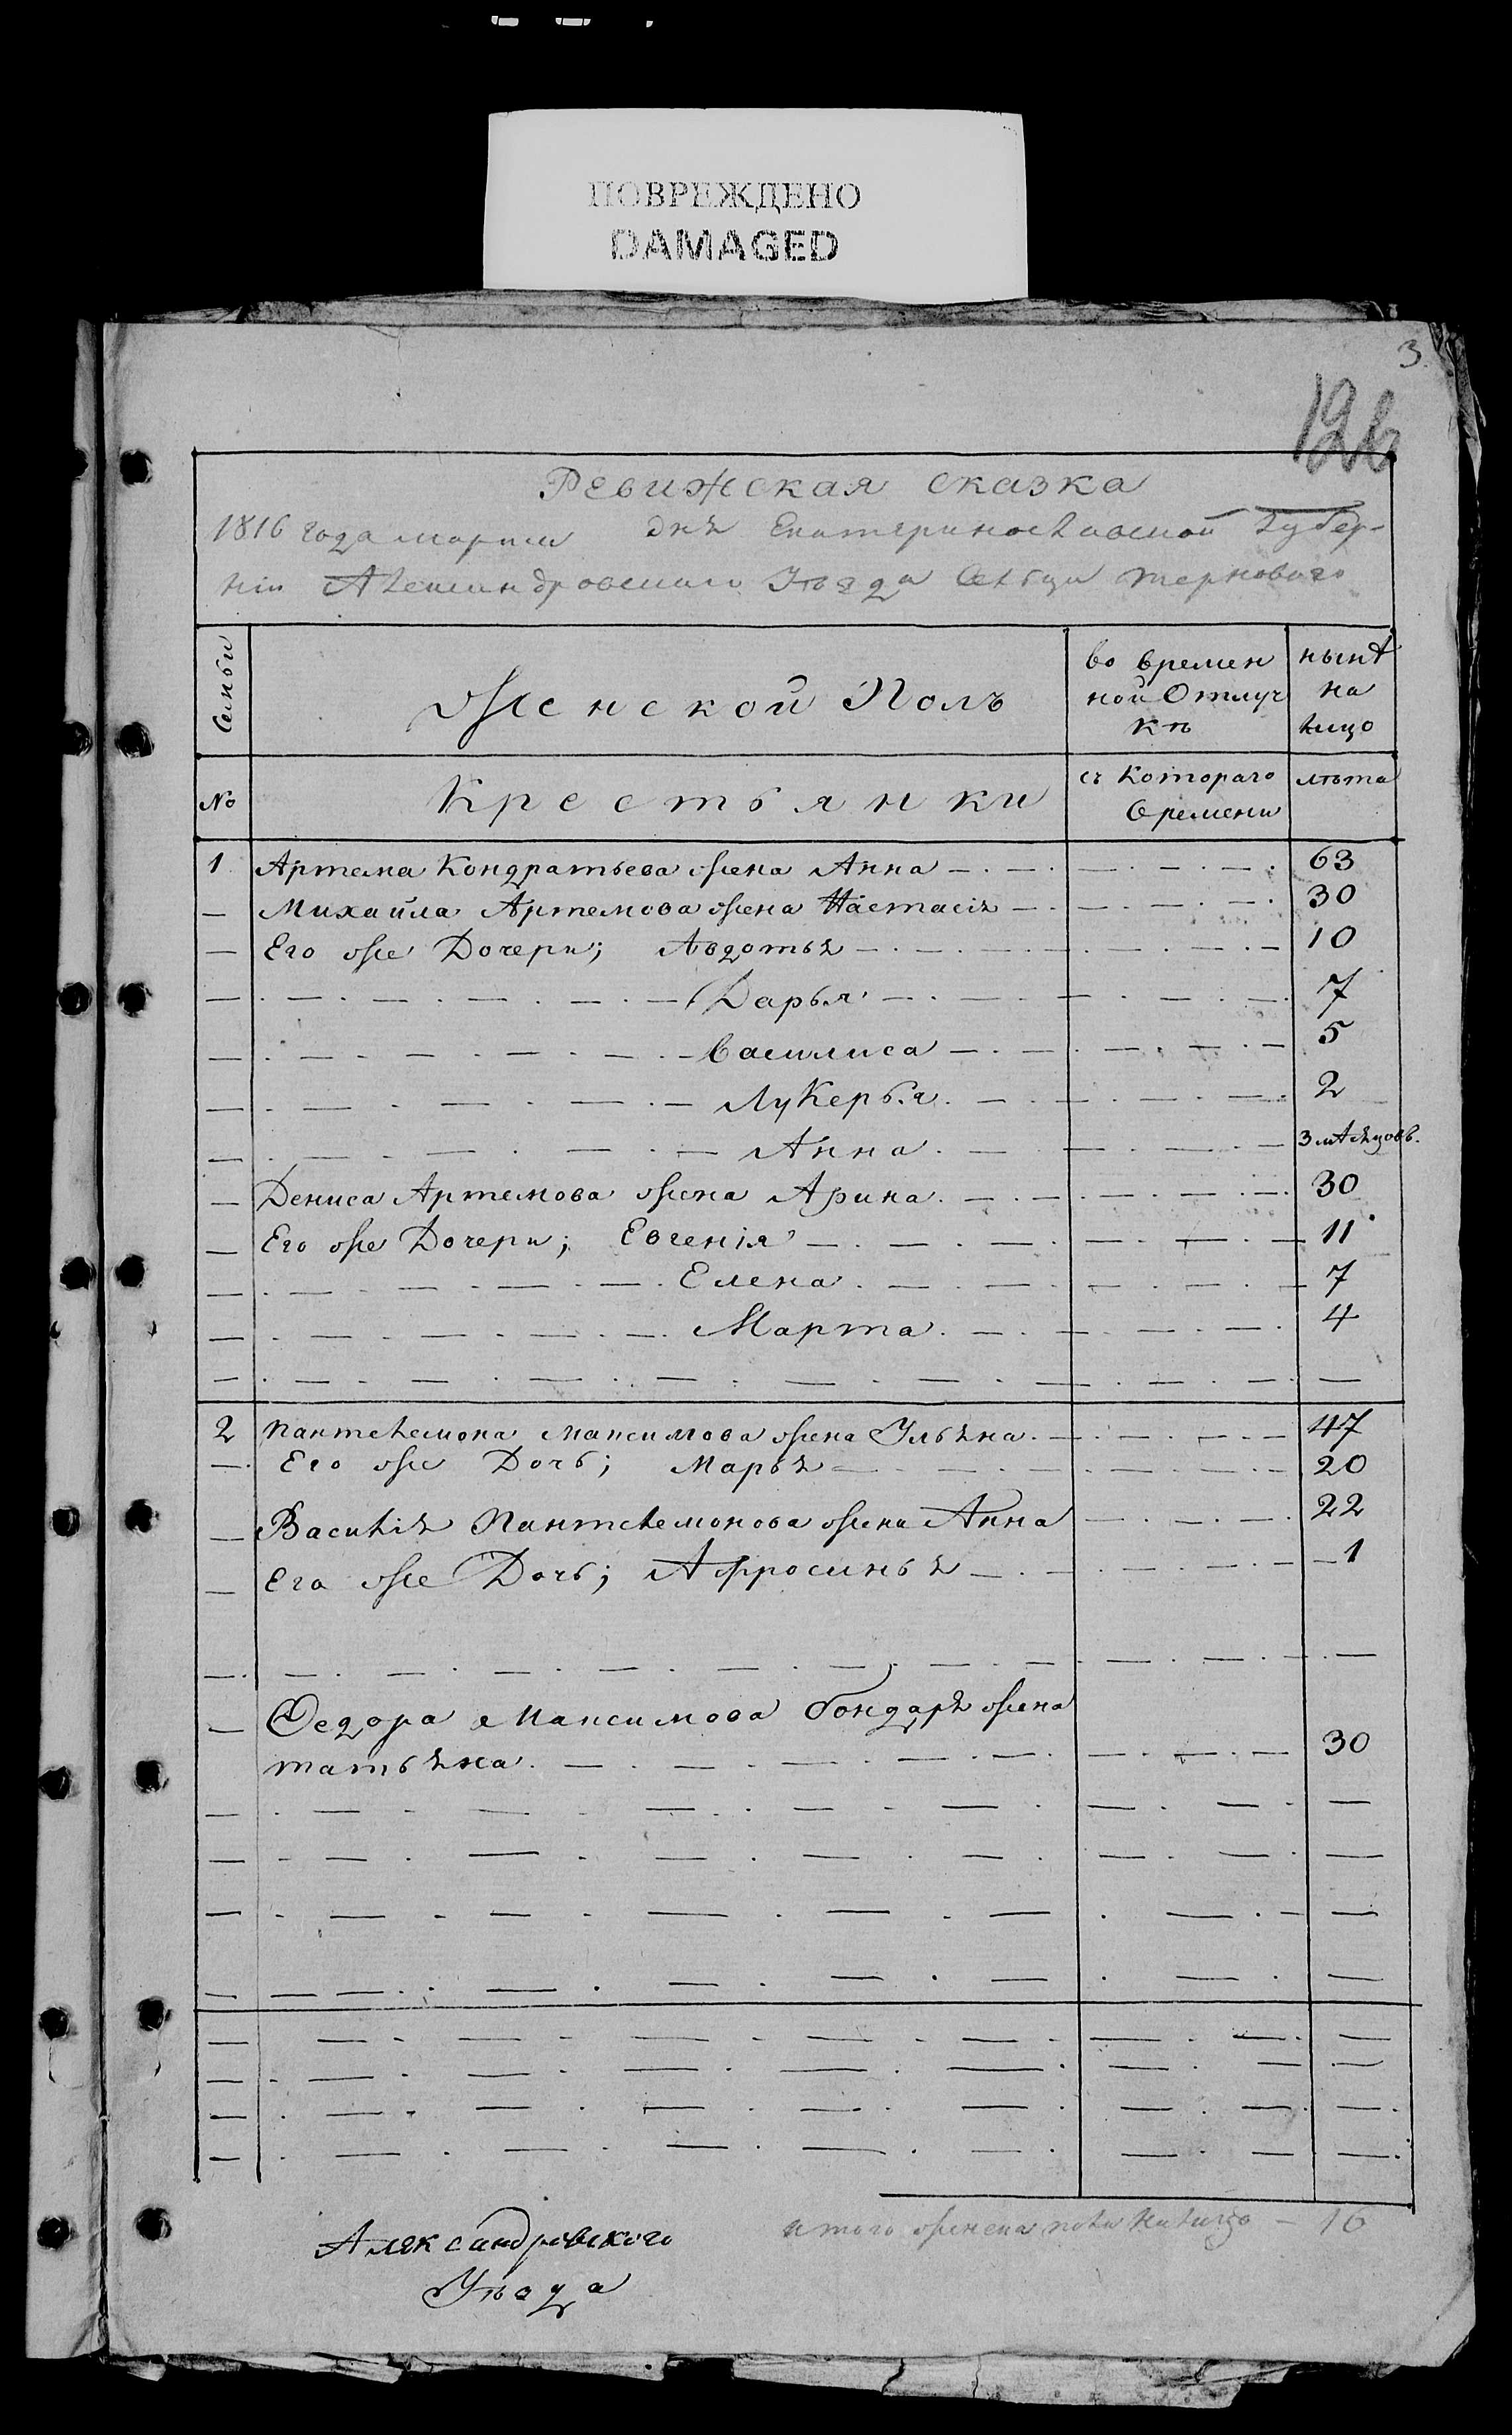 ПОВРЕЖДЕНО
DAMAGED
3.
Ревижская сказка
1816 года марта дня Екатеринославской губер-
нiи Александровскаго Уѣзда сельца терноваго
Семьи
Женской Полъ
во времен
ной Отлуч
кѣ
нынѣ
на
лицо
№
Крестьянки
съ котораго
времени
лѣта
1 Артема Кондратьева жена Анна 63
Михайла Артемова жена Настасiя 30
Его же Дочери; Авдотья 10
Дарья 7
василиса 5
Лукерья 2
Анна 3 мѣсяцовъ.
Дениса Артемова жена Арина 30
Его же Дочери; Евгенiя 11
Елена 7
Марта 4
2 пантелемона максимова жена Ульяна 47
Его же Дочь; Марья 20
Василiя Пантелемонова жена Анна 22
Его же Дочь; Афросинья 1
Федора Максимова бондаря жена
татьяна 30
итого женска пола налицо — 16
Александровского
Уѣзда